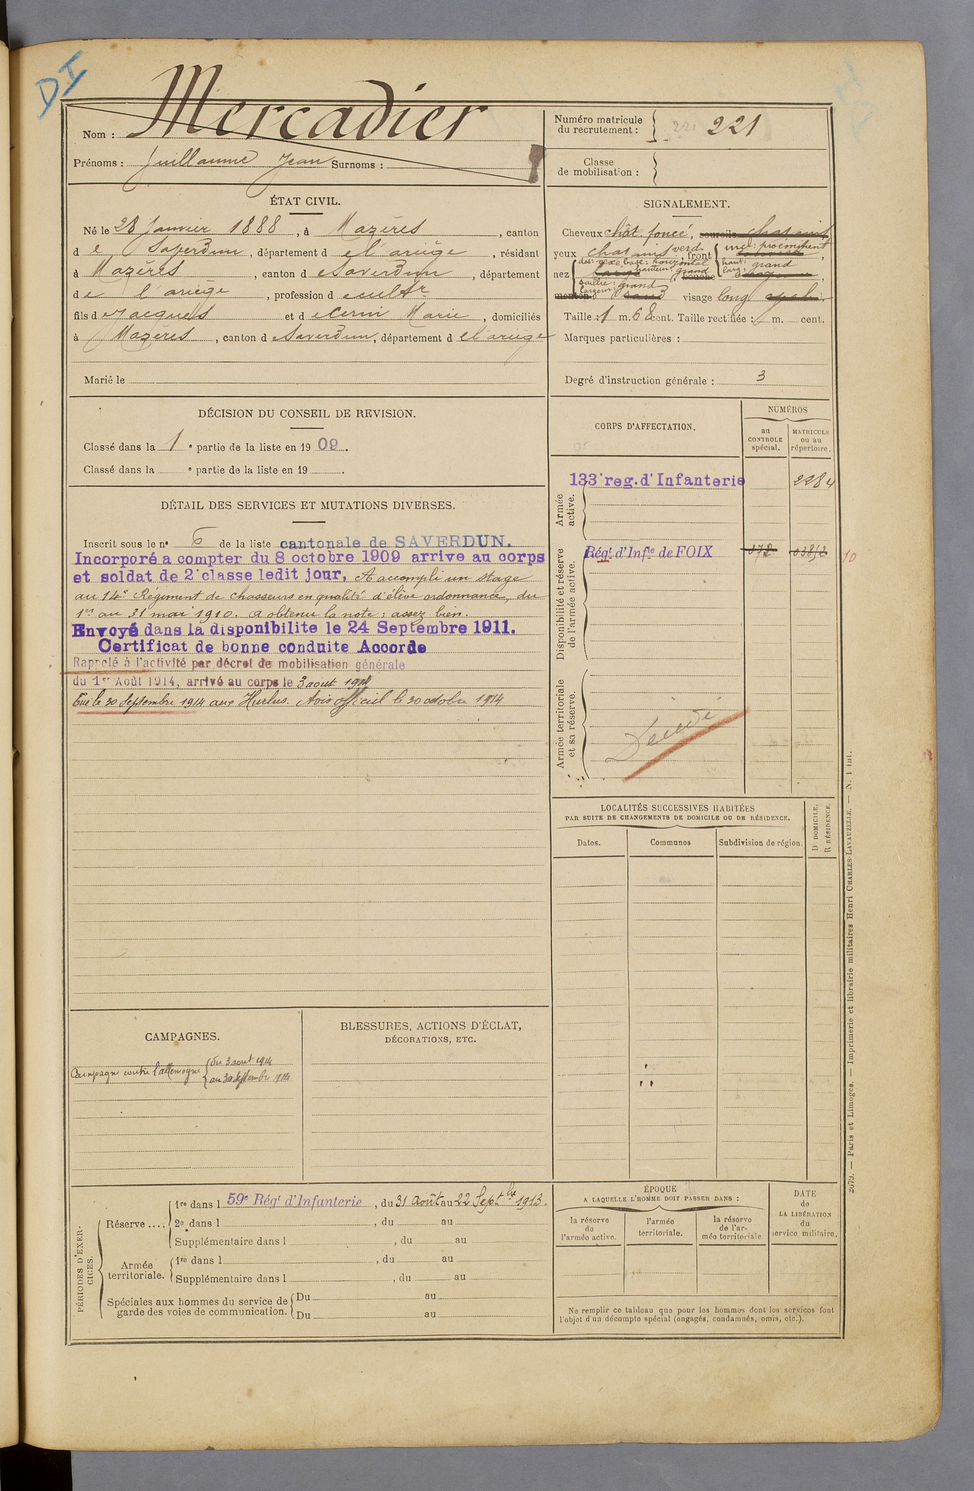 DI
Nom : Mercadier
Prénoms : Guillaume Jean Surnoms :
Numéro matricule
du recrutement : 221 221
Classe
de mobilisation :
ÉTAT CIVIL.
Né le 28 Janvier 1888, à Mazères, canton
d e Saverdun, département d e l'ariège, résidant
à Mazères, canton d e Saverdun, département
d e l'ariège, profession d e cultr
fils d e Jacques et d e Marie, domiciliés
à Mazères, canton d e Saverdun, département d e l'ariège
Marié le
SIGNALEMENT.
Cheveux chât. foncé, sourcils chatains
yeux chatains verd. front incl: proéminent
haut: grand
larg: grand
nez dos: base: horizontal
hauteur: grand bouche
saillie: grand
largeur:
menton rond visage long
Taille : 1 m. 68 cent. Taille rectifiée : m. cent.
Marques particulières :
Degré d'instruction générale : 3
DÉCISION DU CONSEIL DE REVISION.
Classé dans la 1 e partie de la liste en 1909.
Classé dans la e partie de la liste en 19 .
CORPS D'AFFECTATION.
NUMÉROS
au
CONTROLE
spécial.
MATRICULE
ou au
répertoire.
Armée
active.
133e reg. d'Infanterie 2284
Disponibilité et réserve
de l'armée active.
Régt d'Infie de FOIX 572 10
Armée territoriale
et sa réserve.
Décédé
DÉTAIL DES SERVICES ET MUTATIONS DIVERSES.
Inscrit sous le no 6 de la liste cantonale de SAVERDUN.
Incorporé a compter du 8 octobre 1909 arrive au corps
et soldat de 2e classe ledit jour, A accompli un stage
au 14e Régiment de chasseurs en qualité d'élève ordonnance, du
1er au 31 mai 1910. a obtenu la note : assez bien.
Envoyé dans la disponibilite le 24 Septembre 1911.
Certificat de bonne conduite Accorde
Rappelé à l'activité par décret de mobilisation générale
du 1er Août 1914, arrivé au corps le 3 aout 1914
Tué le 30 Septembre 1914 aux Hurlus. Avis officiel le 30 octobre 1914
LOCALITÉS SUCCESSIVES HABITÉES
PAR SUITE DE CHANGEMENTS DE DOMICILE OU DE RÉSIDENCE.
Dates.
Communes
Subdivision de région.
D DOMICILE.
R RÉSIDENCE.
CAMPAGNES.
Campagne contre l'allemagne du 3 aout 1914
au 30 Septembre 1914
BLESSURES, ACTIONS D'ÉCLAT,
DÉCORATIONS, ETC.
PÉRIODES D'EXER-
CICES.
Réserve ....
1re dans l 59e Régt d'Infanterie, du 31 Août au 22 Septbre 1913.
2e dans l , du au
Supplémentaire dans l , du au
Armée
territoriale.
1re dans l , du au
Supplémentaire dans l , du au
Spéciales aux hommes du service de
garde des voies de communication.
Du au
Du au
ÉPOQUE
A LAQUELLE L'HOMME DOIT PASSER DANS :
la réserve
de
l'armée active.
l'armée
territoriale.
la réserve
de l'ar-
mée territoriale
DATE
de
LA LIBÉRATION
du
service militaire.
Ne remplir ce tableau que pour les hommes dont les services font
l'objet d'un décompte spécial (engagés, condamnés, omis, etc.).
2679. — Paris et Limoges. — Imprimerie et librairie militaires Henri CHARLES-LAVAUZELLE. — N. 1 int.